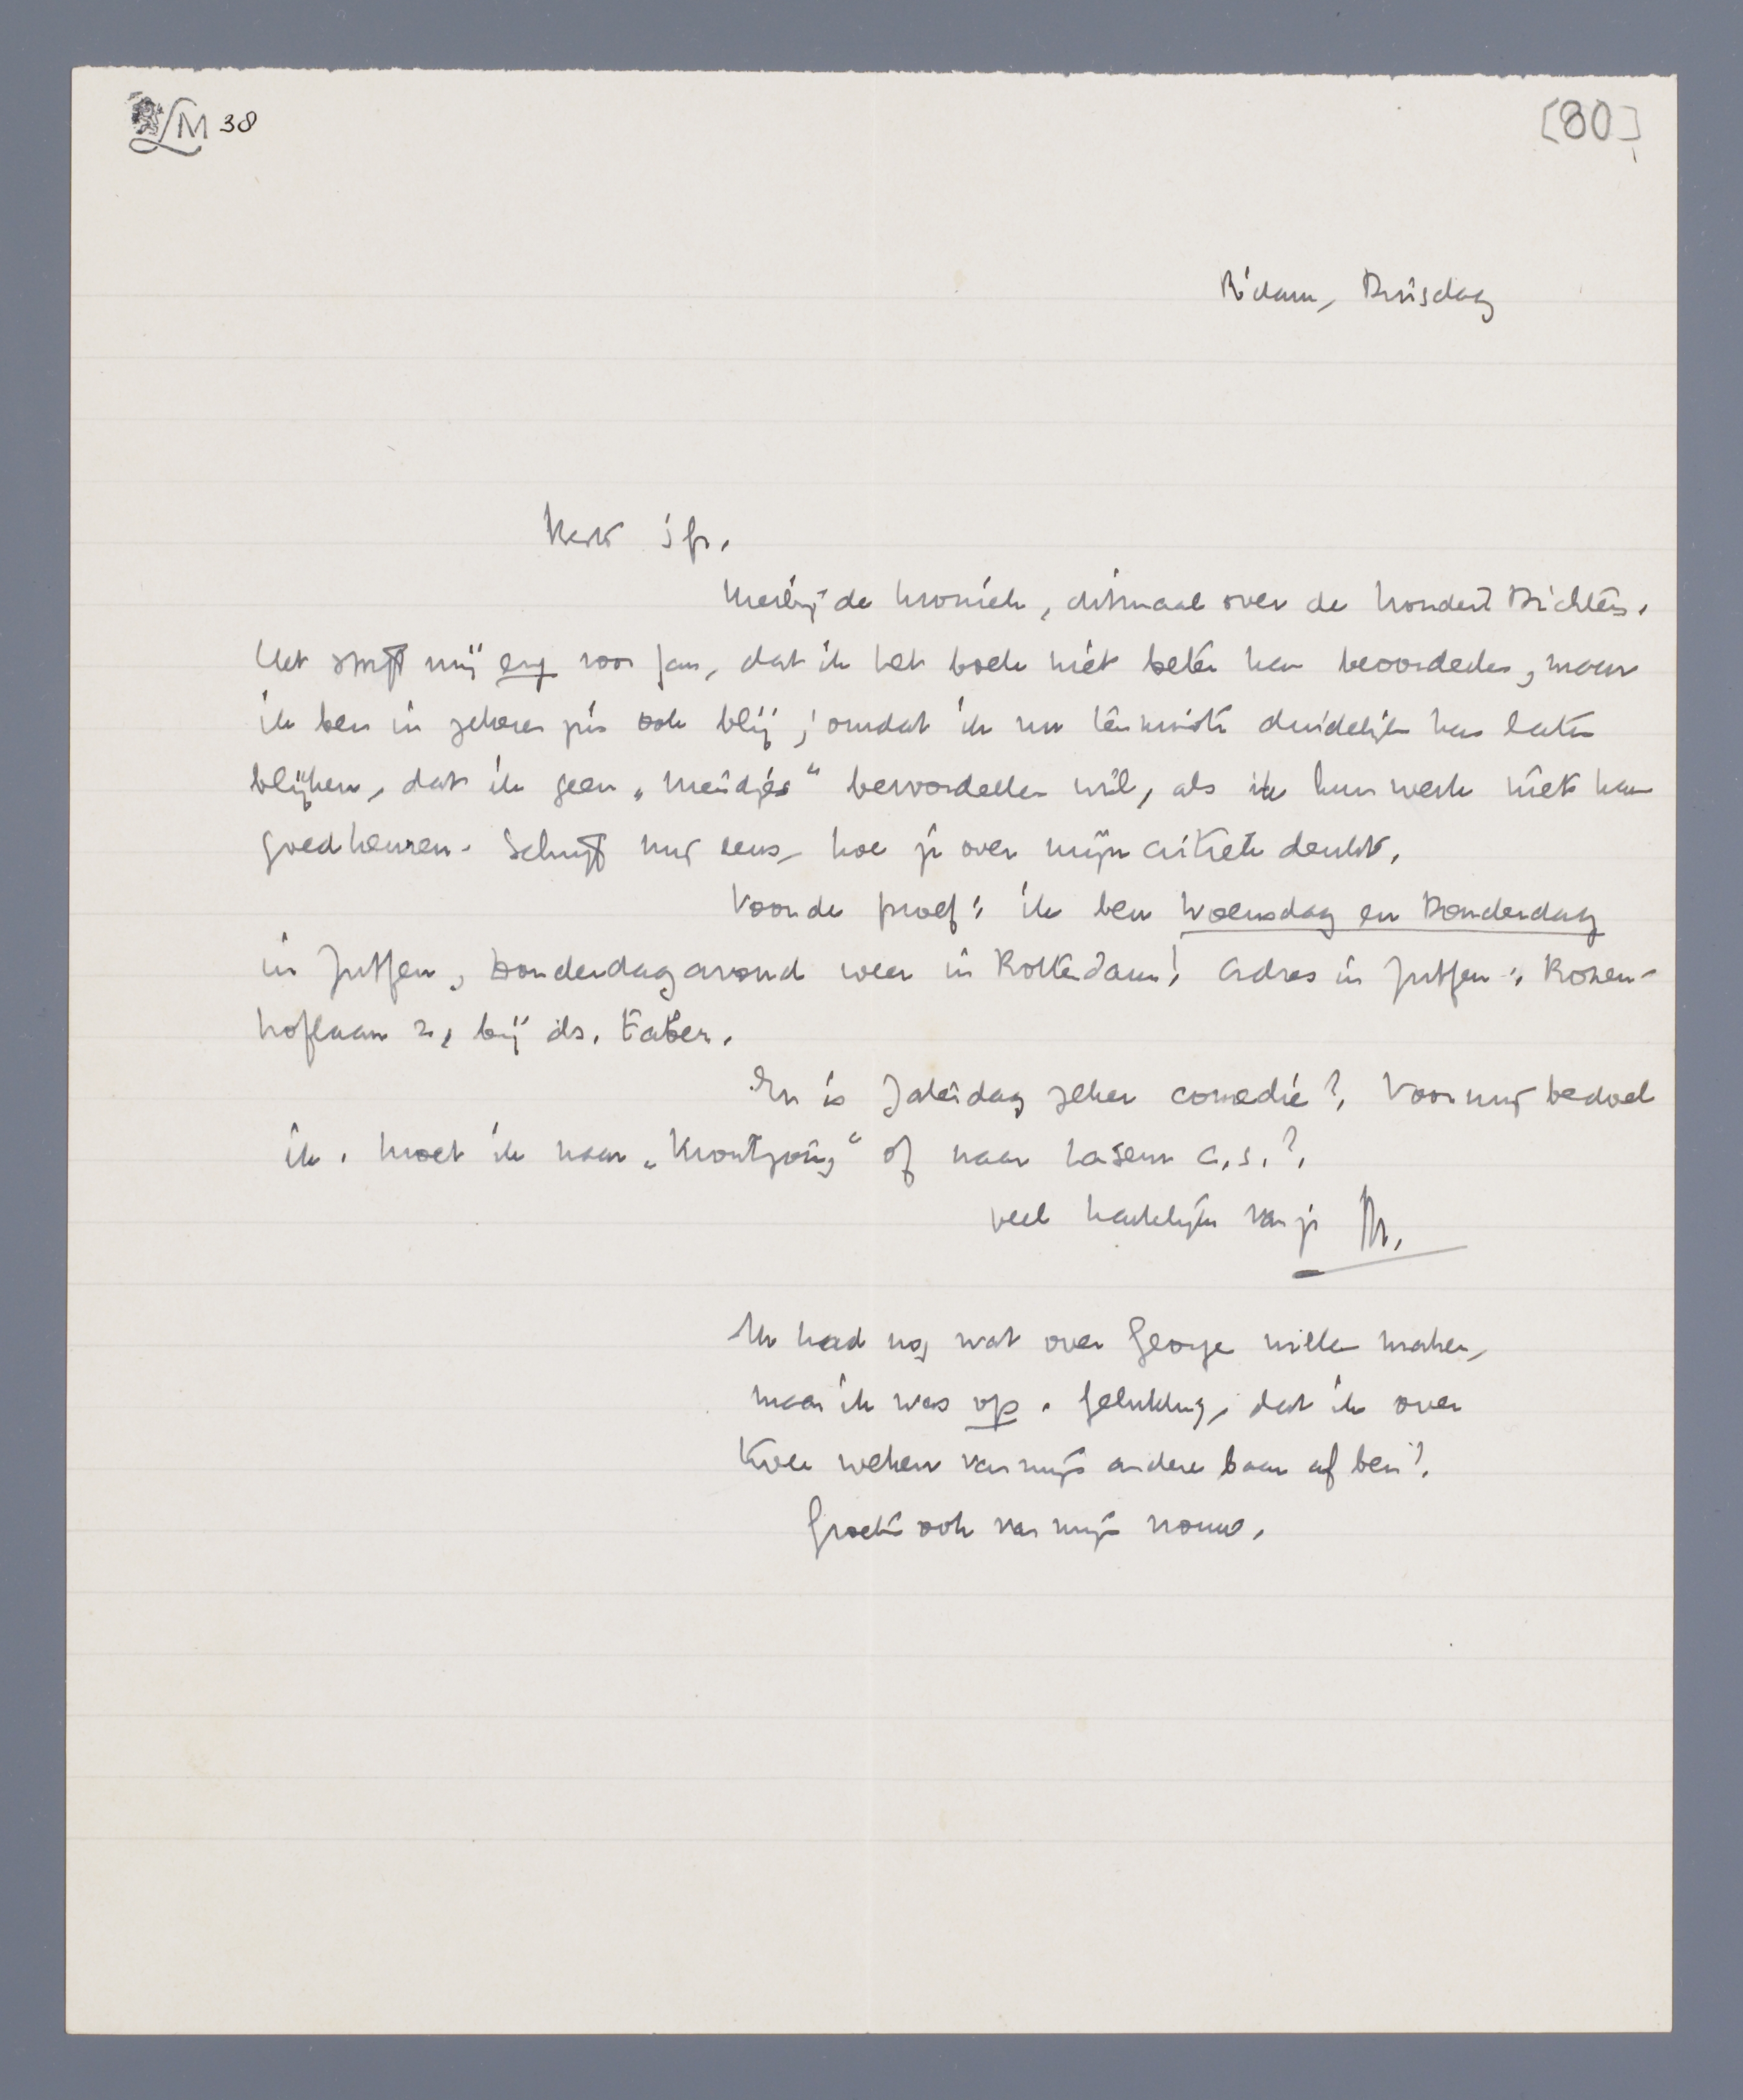 LM 38
[80]
R'dam, Dinsdag
Beste jfr.
Hierbij de kroniek, ditmaal over de honderd Dichters.
Het spijt mij erg voor Jan, dat ik het boek niet beter kan beoordeelen, maar
ik ben in zekeren zin ook blij, omdat ik nu tenminste duidelijk kan laten
blijken, dat ik geen „meidjes“ bevoordeelen wil, als ik hun werk niet kan
goedkeuren. Schrijf mij eens, hoe je over mijn critiek denkt.
Voor de proef: ik ben Woensdag en Donderdag
in Zutfen, Donderdagavond weer in Rotterdam! Adres in Zutfen: Rozen-
hoflaan 2, bij ds. Faber.
En is Zaterdag zeker comedie? Voor mij bedoel
ik. Moet ik naar „Krontjong“ of naar Laseur c.s.?
veel hartelijks van je M.
Ik had nog wat over George willen maken,
maar ik was op. Gelukkig, dat ik over
twee weken van mijn andere baan af ben!
Groeten ook van mijn vrouw.